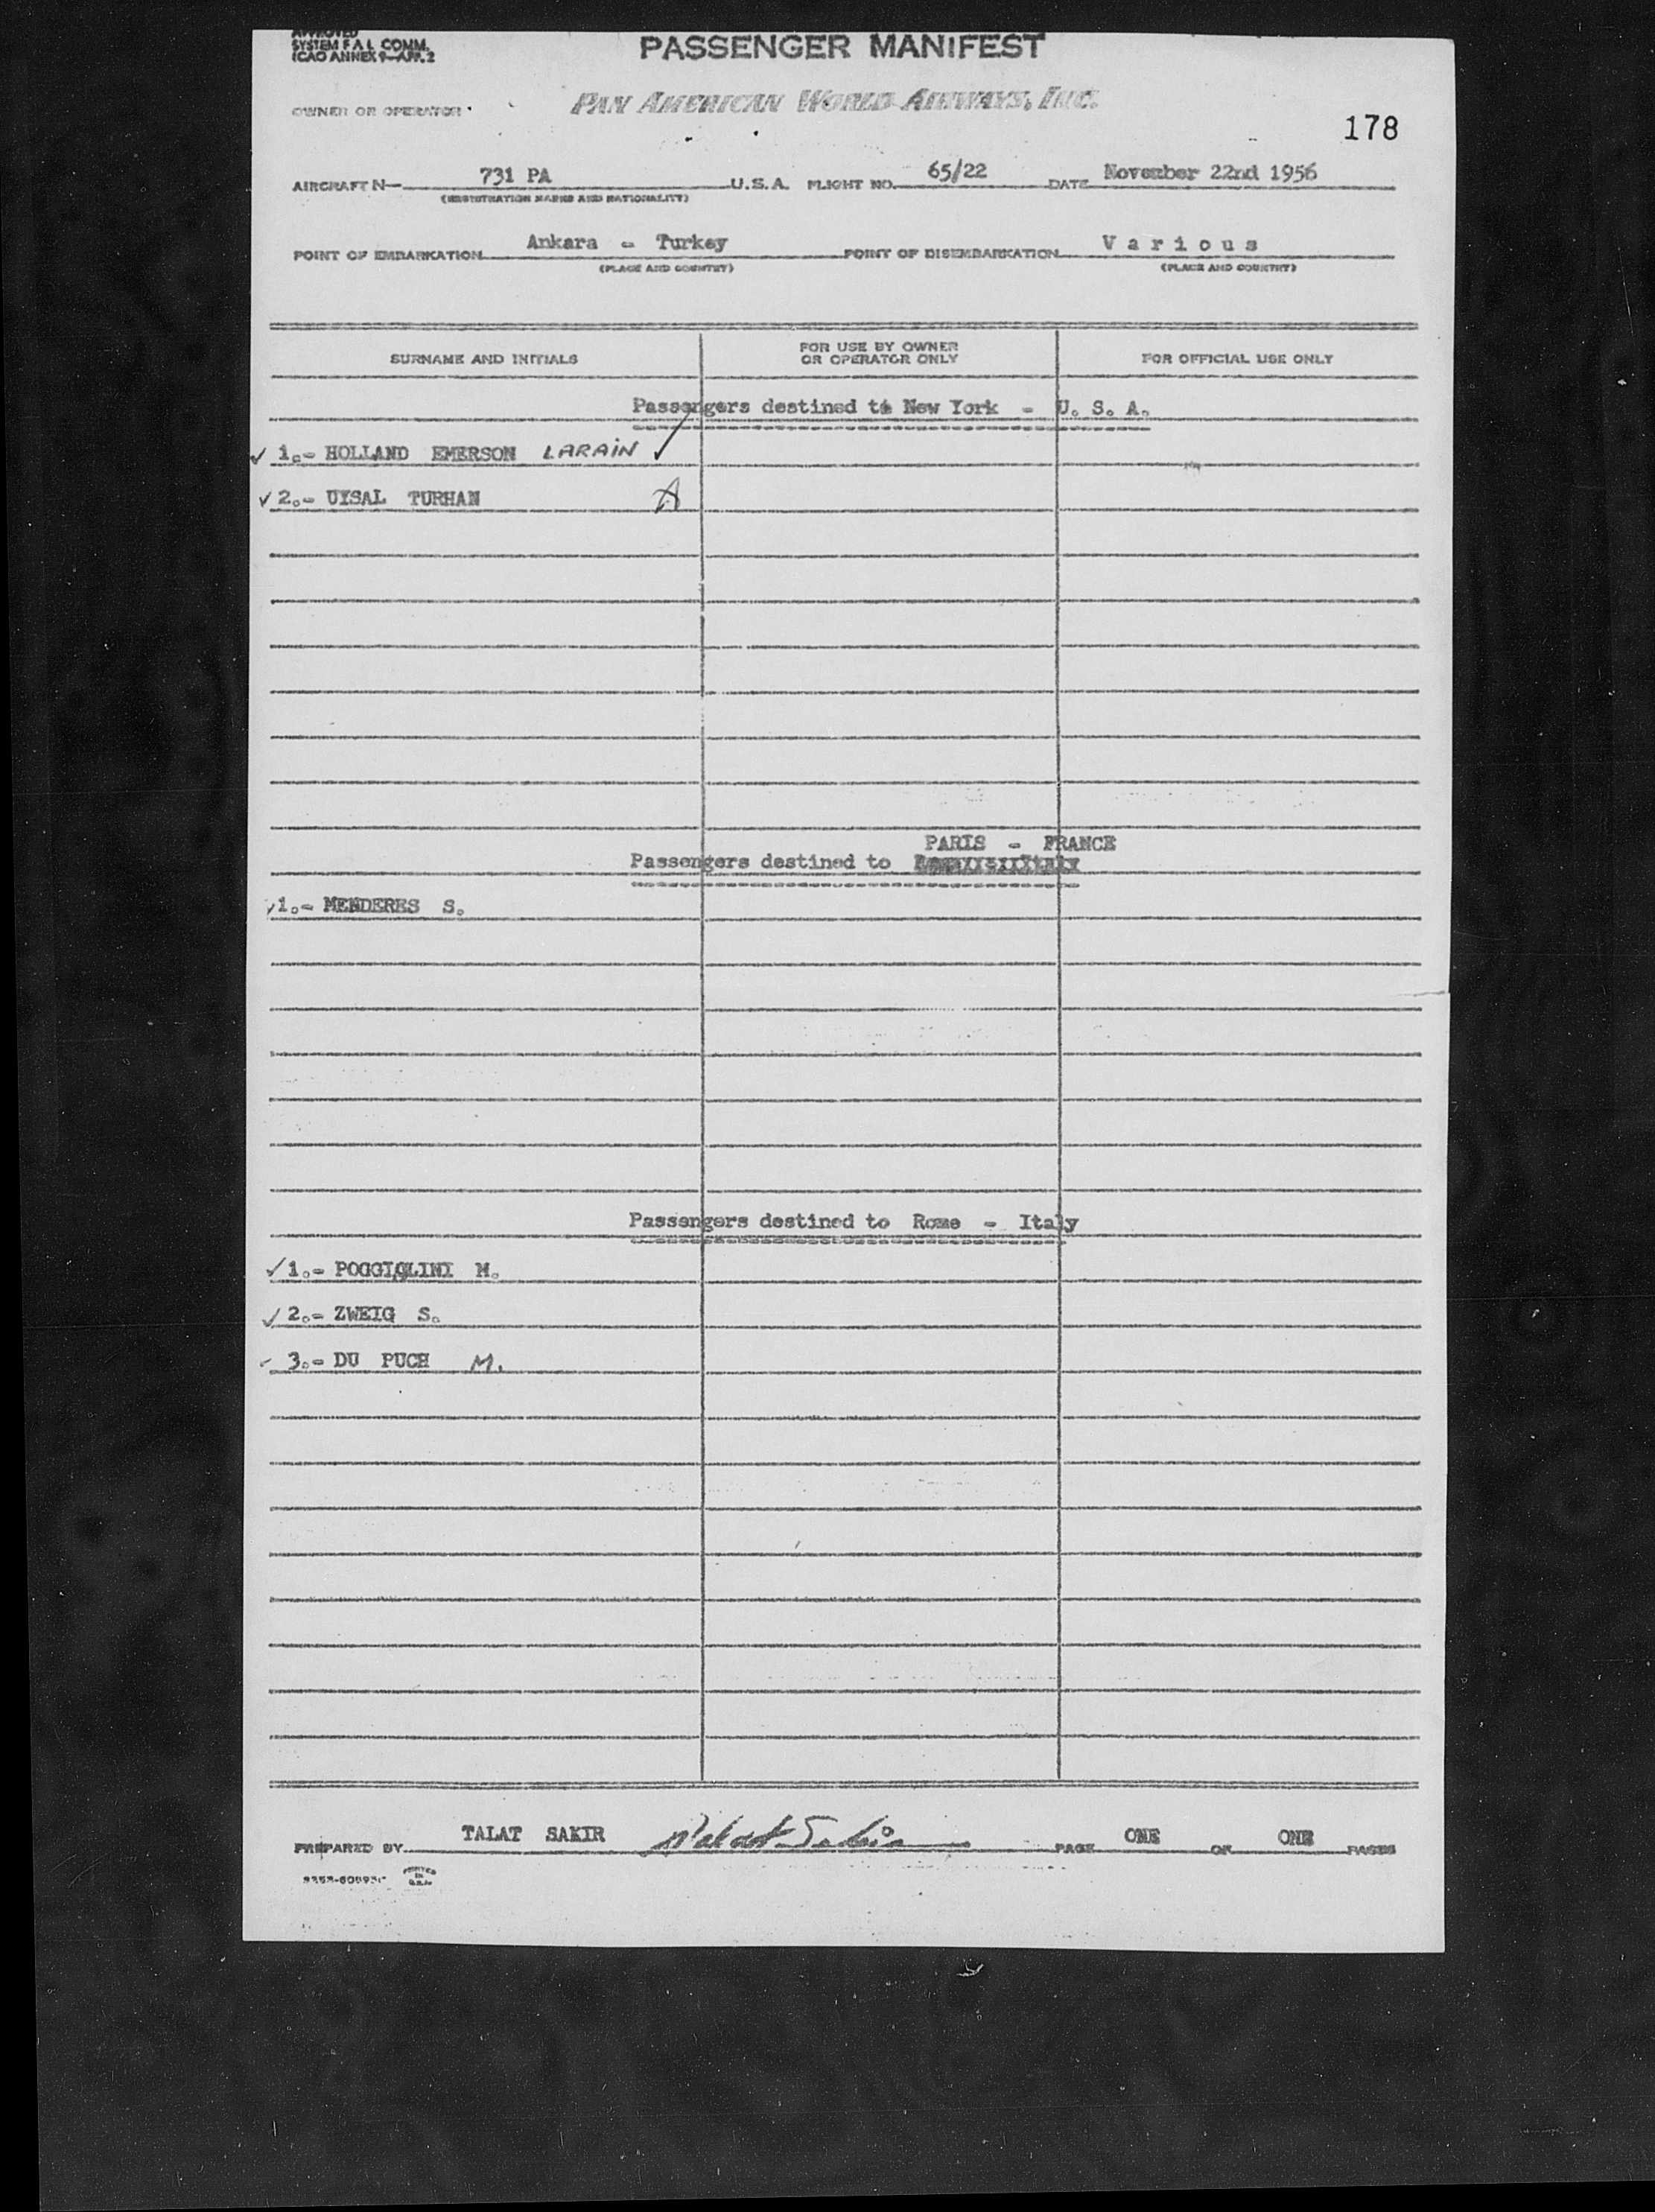 APPROVED
SYSTEM F A L COMM.
ICAO ANNEX 9—APP. 2
PASSENGER MANIFEST
OWNER OR OPERATOR
PAN AMERICAN WORLD AIRWAYS, INC.
178
AIRCRAFT N— 731 PA U.S.A. FLIGHT NO. 65/22 DATE November 22nd 1956
(REGISTRATION MARKS AND NATIONALITY)
POINT OF EMBARKATION Ankara - Turkey POINT OF DISEMBARKATION Various
(PLACE AND COUNTRY) (PLACE AND COUNTRY)
SURNAME AND INITIALS FOR USE BY OWNER OR OPERATOR ONLY FOR OFFICIAL USE ONLY
Passengers destined to New York - U. S. A.
✓ 1.- HOLLAND EMERSON LARAIN ✓
✓ 2.- UYSAL TURHAN A
PARIS - FRANCE
Passengers destined to
1.- MENDERES S.
Passengers destined to Rome - Italy
✓ 1.- POGGIOLINI M.
✓ 2.- ZWEIG S.
✓ 3.- DU PUCH M.
PREPARED BY TALAT SAKIR Talat Sakir PAGE ONE OF ONE PAGES
PRINTED IN U.S.A.